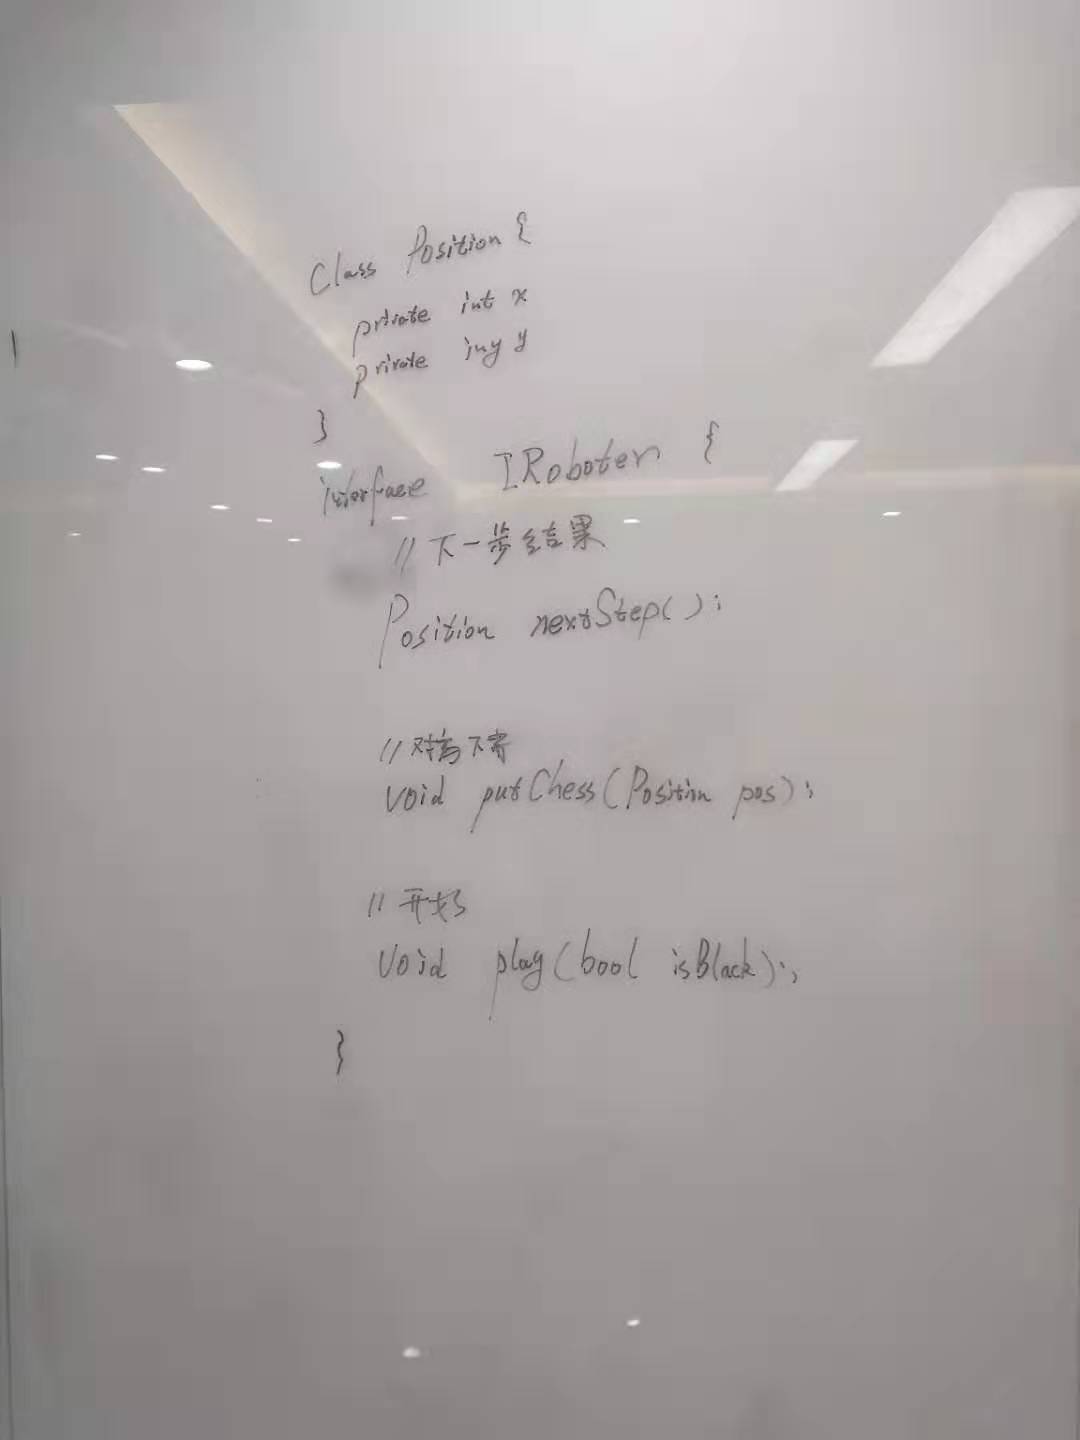 Class Position {
private int x
private iny y
}
interface IRoboter {
// 下一步结果
Position nextStep();
// 对方下棋
void putChess(Position pos);
// 开始
void play(bool isBlack);
}